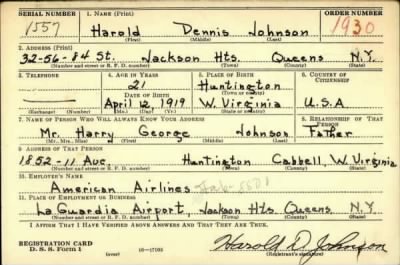 SERIAL NUMBER 1. NAME (Print) ORDER NUMBER
1557 Harold Dennis Johnson 1930
(First) (Middle) (Last)
2. ADDRESS (Print)
32-56-84 St. Jackson Hts. Queens N.Y.
(Number and street or R. F. D. number) (Town) (County) (State)
3. TELEPHONE 4. AGE IN YEARS 5. PLACE OF BIRTH 6. COUNTRY OF CITIZENSHIP
21 Huntington
DATE OF BIRTH (Town or county)
— April 12 1919 W. Virginia U.S.A
(Exchange) (Number) (Mo.) (Day) (Yr.) (State or country)
7. NAME OF PERSON WHO WILL ALWAYS KNOW YOUR ADDRESS 8. RELATIONSHIP OF THAT PERSON
Mr. Harry George Johnson Father
(Mr., Mrs., Miss) (First) (Middle) (Last)
9. ADDRESS OF THAT PERSON
1852-11 Ave. Huntington Cabbell, W. Virginia
(Number and street or R. F. D. number) (Town) (County) (State)
10. EMPLOYER'S NAME
American Airlines
11. PLACE OF EMPLOYMENT OR BUSINESS
La Guardia Airport, Jackson Hts. Queens N.Y.
(Number and street or R. F. D. number) (Town) (County) (State)
I AFFIRM THAT I HAVE VERIFIED ABOVE ANSWERS AND THAT THEY ARE TRUE.
REGISTRATION CARD
D. S. S. Form 1 (over) 16—17105 Harold D. Johnson
(Registrant's signature)